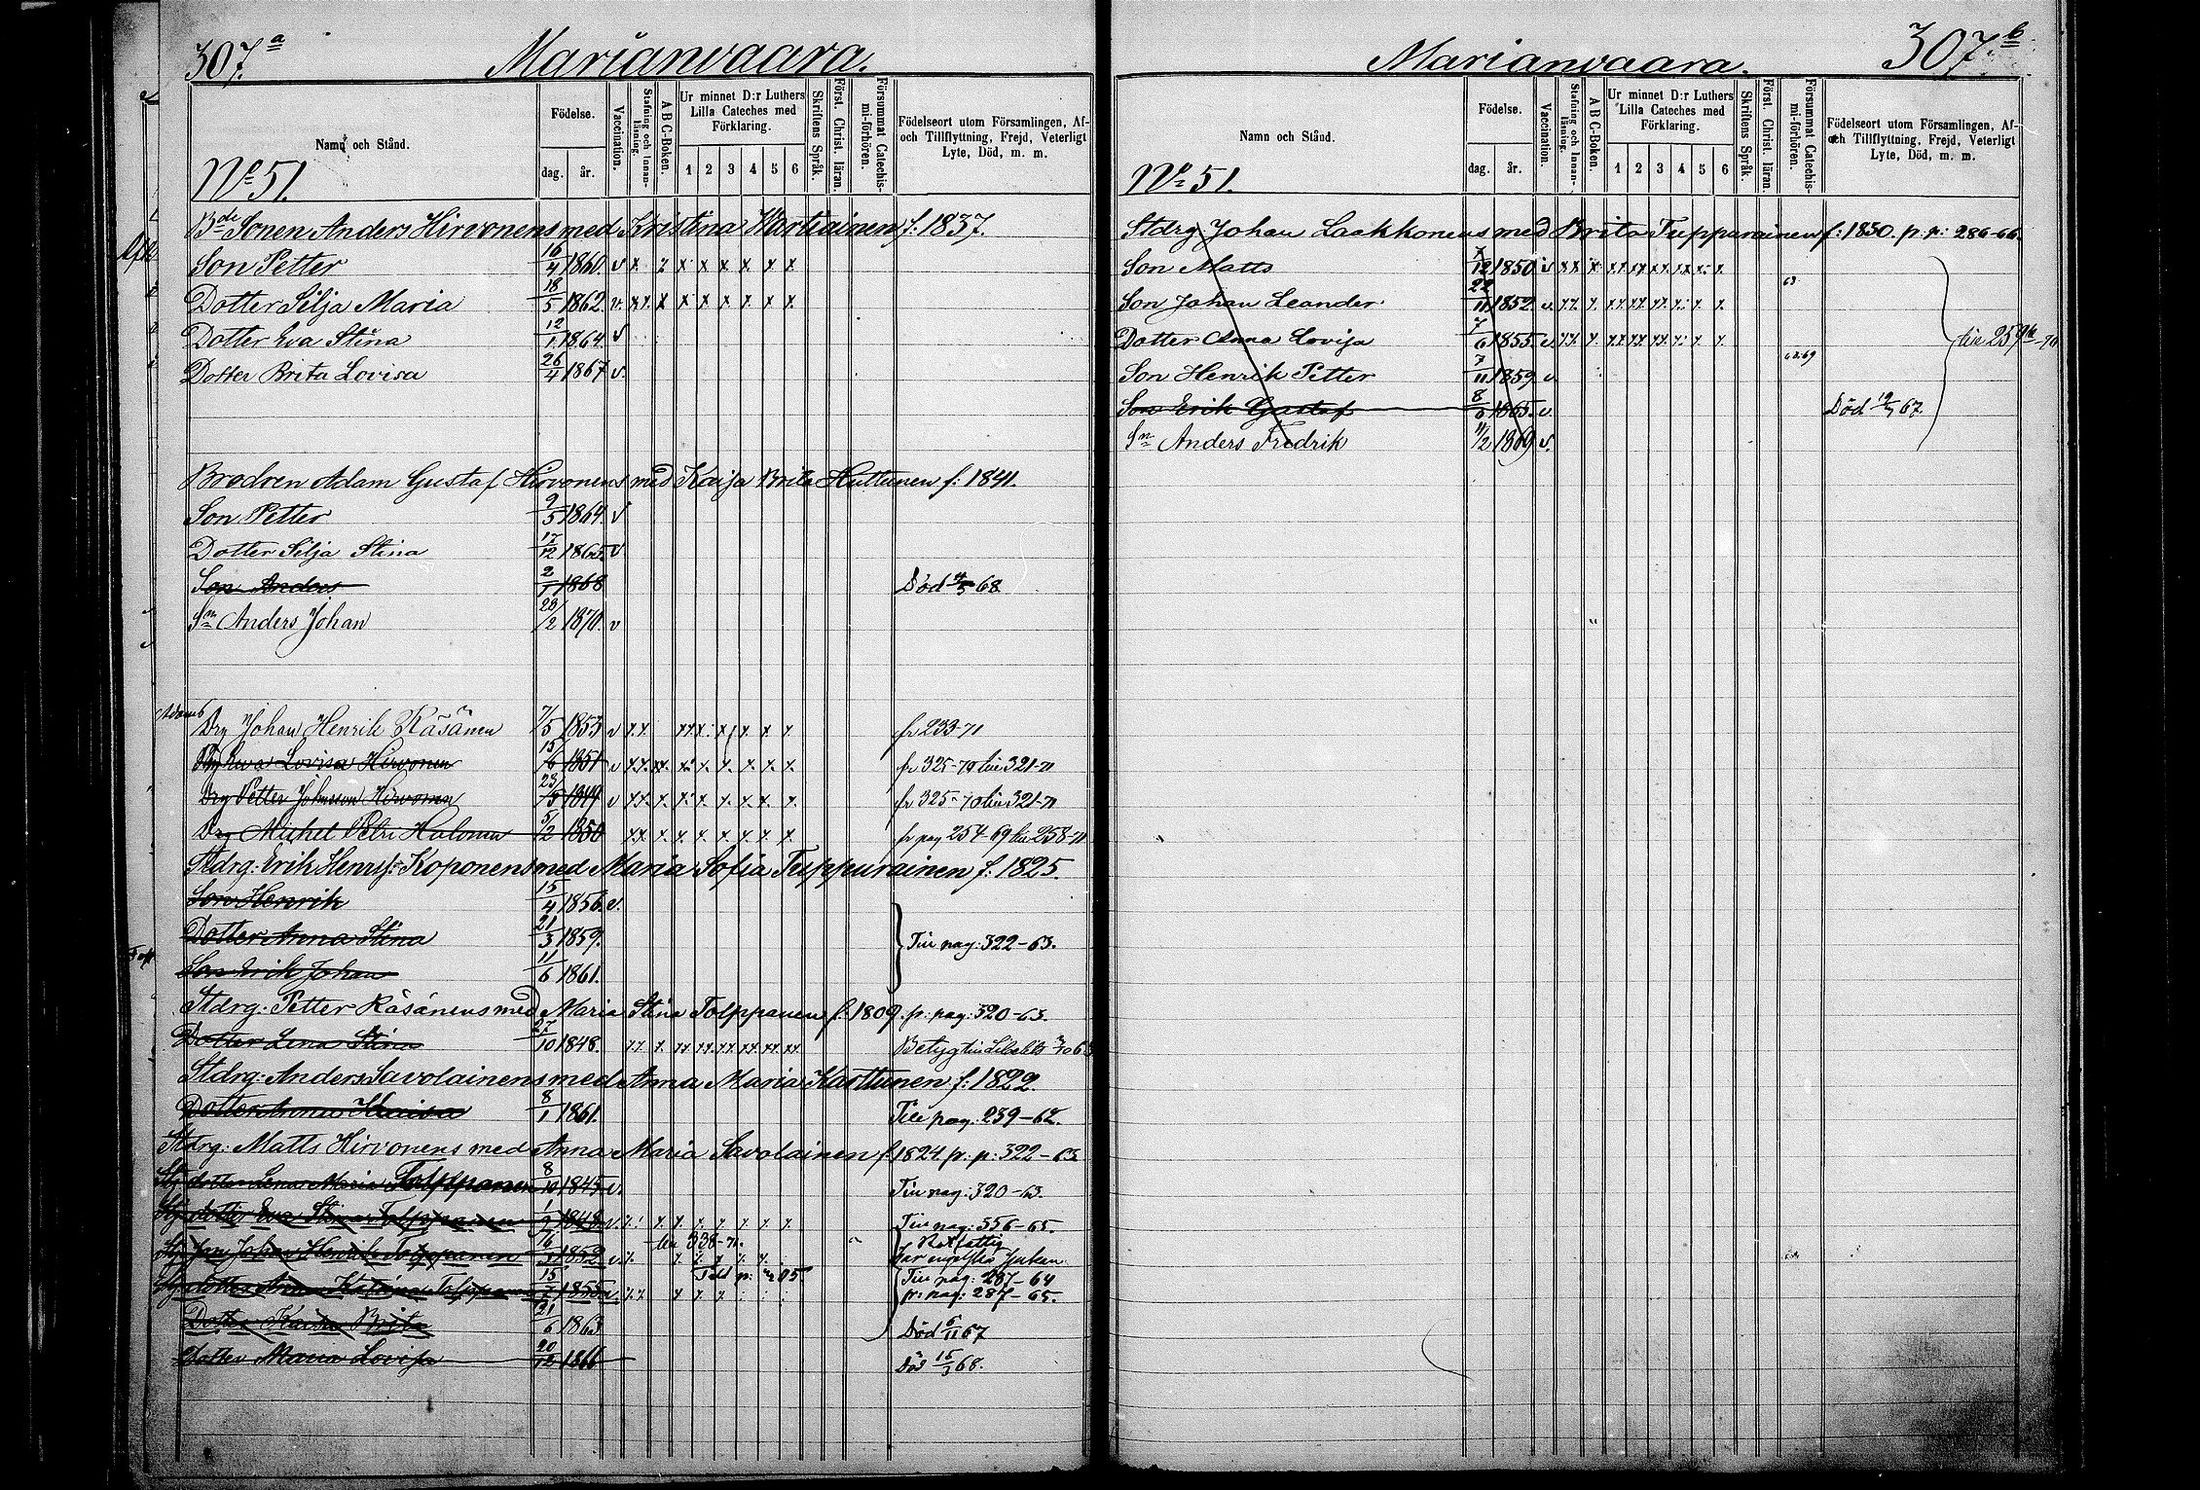 307.a Marianvaara.
Namn och Stånd.
Födelse.
dag. år.
Vaccination.
Stafning och Innanläsning.
A B C-Boken.
Ur minnet D:r Luthers Lilla Cateches med Förklaring.
1 2 3 4 5 6
Skriftens Språk.
Först. Christ. läran.
Försummat Catechismi-förhören.
Födelseort utom Församlingen, Af- och Tillflyttning, Frejd, Veterligt Lyte, Död, m. m.
No 51.
Bde Sonen Anders Hirvonens med Kristina Martiainen f. 1837.
Son Petter 16/4 1860. v x x x x x x x x
Dotter Silja Maria 18/5 1862. v. x x. x x x x x x x
Dotter Eva Stina 12/1 1864. v
Dotter Brita Lovisa 26/4 1867 v.
Brodren Adam Gustaf Hirvonens med Kaisa Brita Huttunen f: 1841.
Son Petter 9/5 1864. v
Dotter Silja Stina 17/12 1865. v
Son Anders 2/1 1868 Död 4/5 68
Sn Anders Johan 23/2 1870. v
Adams
Drg Johan Henrik Räsänen 7/5 1853 v x x x x x x x x x fr 233-71
Eva Lovisa Hirvonen 15/6 1851 v x x. x x. x x. x. x. x. x. fr 325-70 till 321-71
Drg Petter Johnsson Hirvonen 23/5 1849 v x x. x. x x. x. x. x. x. fr 325-70 till 321-71
Drg Michel Petri Halonen 5/2 1850 x x. x. x. x. x. x. x. x. fr pag 254-69 till 258-71
Stdrg: Erik Henrss: Koponens med Maria Sofia Tuppurainen f: 1825.
Son Henrik 15/4 1856. v.
Dotter Anna Stina 21/3 1859. Till pag: 322-63.
Son Erik Johan 11/6 1861.
Stdrg: Petter Räsänens med Maria Stina Tolppanen f: 1809. fr: pag: 320-63.
Dotter Lena Stina 27/10 1848. x x x. x x x x. x x. x x. x x. x x Betyg till Libelits
Stdrg: Anders Savolainens med Anna Maria Karttunen f: 1822.
Dotter Anna Kaisa 8/1 1861. Till pag: 239-62.
Stdrg: Matts Hirvonens med Anna Maria Savolainen f. 1824 fr. p: 322-63
Stj dotter Lena Maria Tolppanen 8/10 1845 v. Till pag: 320-63.
Stj dotter Eva Stina Tolppanen 1848 v. x. x. x. x. x. x. x. x. Till pag: 356-65.
till 338-71. Utfattig
Stj Son Johan Henrik Tolppanen 1852 v. x. x. x. x. x. x. Har engelska sjukan
Till pag: 287-64
Stj dotter Anna Katrina Tolppanen 15 1855 v. x x x x. x fr: pag: 287-65.
Dotter Kaisa Brita 21/6 1863 Död 6/11 67
Dotter Maria Lovisa 20/12 1866 Död 15/3 68.
Marianvaara. 307.b
Namn och Stånd.
Födelse.
dag. år.
Vaccination.
Stafning och Innanläsning.
A B C-Boken.
Ur minnet D:r Luthers Lilla Cateches med Förklaring.
1 2 3 4 5 6
Skriftens Språk.
Först. Christ. läran.
Försummat Catechismi-förhören.
Födelseort utom Församlingen, Af- och Tillflyttning, Frejd, Veterligt Lyte, Död, m. m.
No 51.
Stdrg Johan Laakkonens med Brita Tuppurainen f: 1830. fr. p: 286-66.
Son Matts 7/12 1850 v x x x. x x x x x x x x x. x.
Son Johan Leander 22/11 1852. v. x x. x. x x x x x x x. x. x. 63
Dotter Anna Lovisa 7/6 1855. v. x x. x. x x x x x x x. x. x. till 259 -70
Son Henrik Petter 7/11 1859. v. 68.69
Son Erik Gustaf 8/6 1865. v. Död 19/7 67
Sn Anders Fredrik 11/2 1869 v.